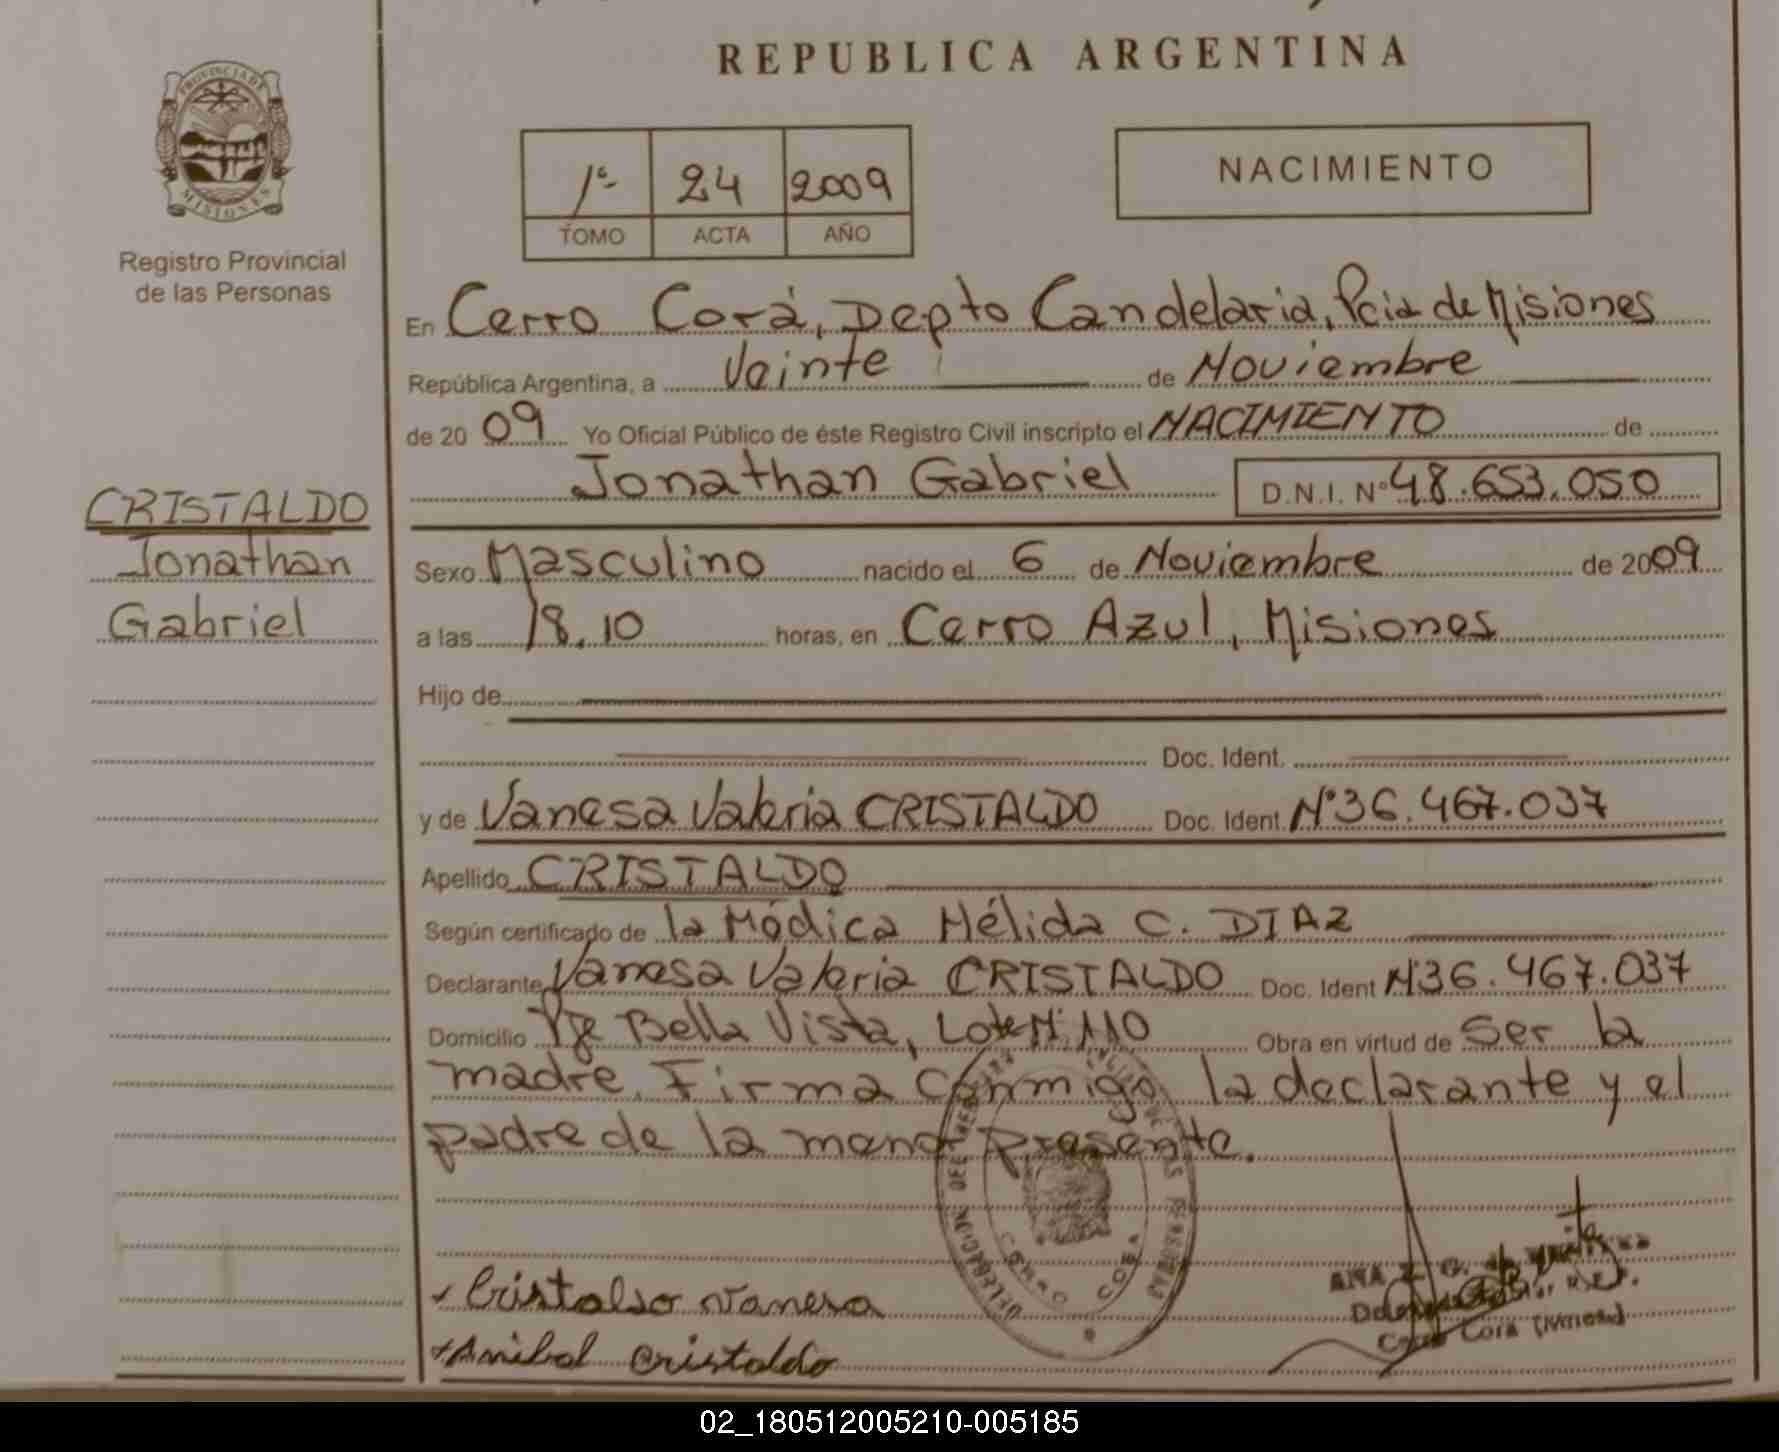 REPUBLICA ARGENTINA
PROVINCIA DE MISIONES
Registro Provincial
de las Personas
1º 24 2009
TOMO ACTA AÑO
NACIMIENTO
En Cerro Corá, Depto Candelaria, Pcia de Misiones
República Argentina, a Veinte de Noviembre
de 2009 Yo Oficial Público de éste Registro Civil inscripto el NACIMIENTO de
Jonathan Gabriel D.N.I. Nº 48.653.050
CRISTALDO
Jonathan
Gabriel
Sexo Masculino nacido el 6 de Noviembre de 2009
a las 18.10 horas, en Cerro Azul, Misiones
Hijo de
Doc. Ident.
y de Vanesa Valeria CRISTALDO Doc. Ident. Nº 36.467.037
Apellido CRISTALDO
Según certificado de la Médica Nélida C. DIAZ
Declarante Vanesa Valeria CRISTALDO Doc. Ident Nº 36.467.037
Domicilio Pje Bella Vista, Lote Nº 110 Obra en virtud de Ser la
madre. Firma Conmigo la declarante y el
padre de la menor presente.
DELEGACION DEL REGISTRO DE LAS PERSONAS
CERRO CORA
Cristaldo Vanesa
Anibal Cristaldo
ANA
Cerro Cora (Mnes)
02_180512005210-005185